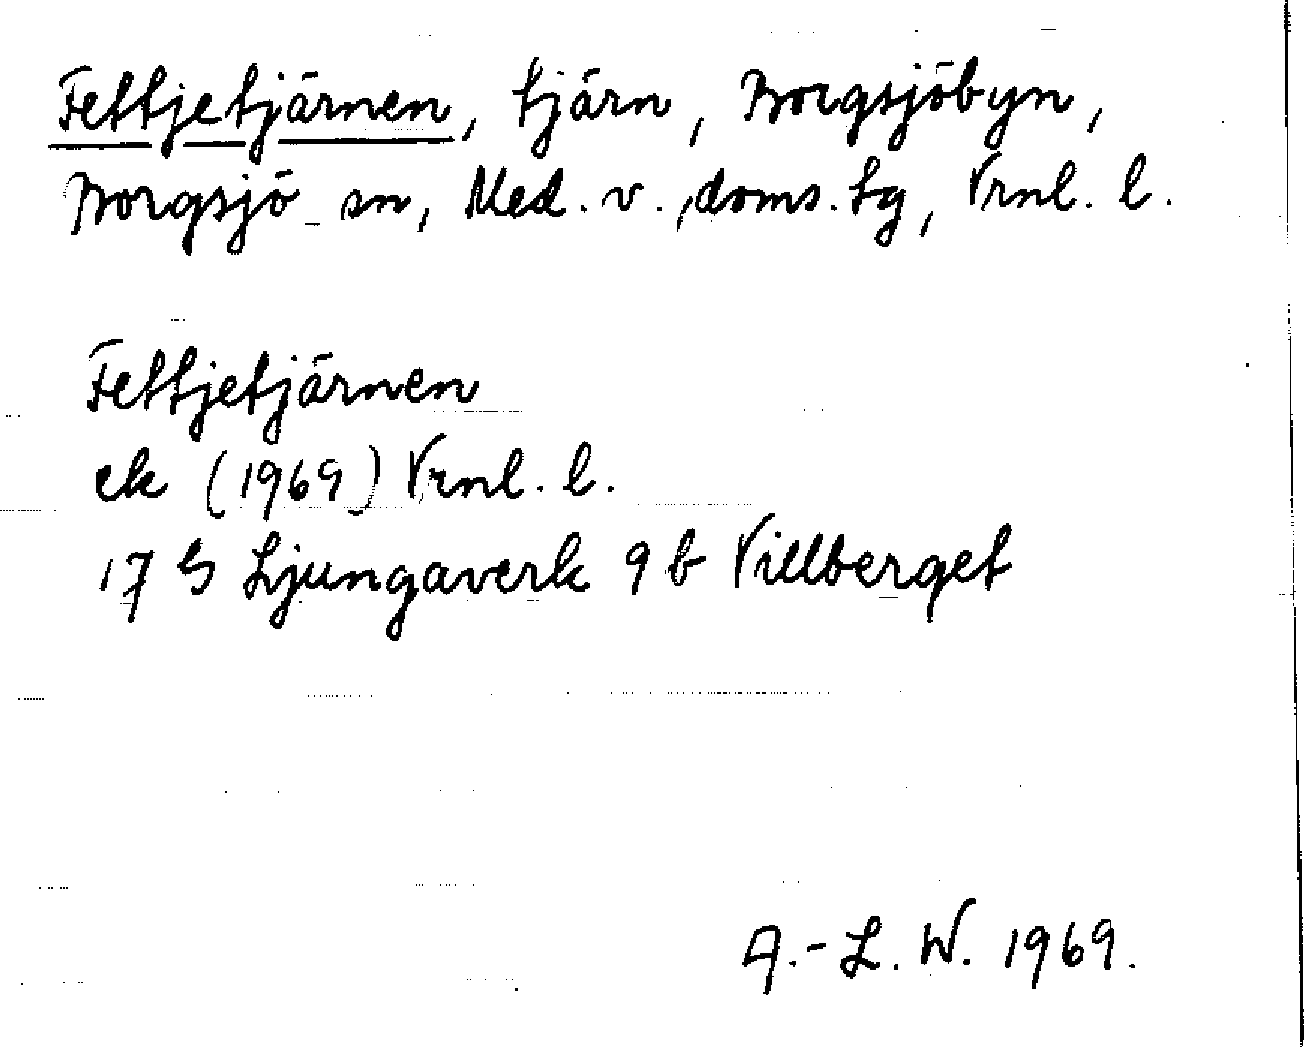 Fettjetjärnen, tjärn, Borgsjöbyn,
Borgsjö sn, Med. v. doms. tg, Vrnl. l.
Fettjetjärnen
ek (1969) Vrnl. l.
17 G Ljungaverk 9 b Villberget
A.-L. W. 1969.